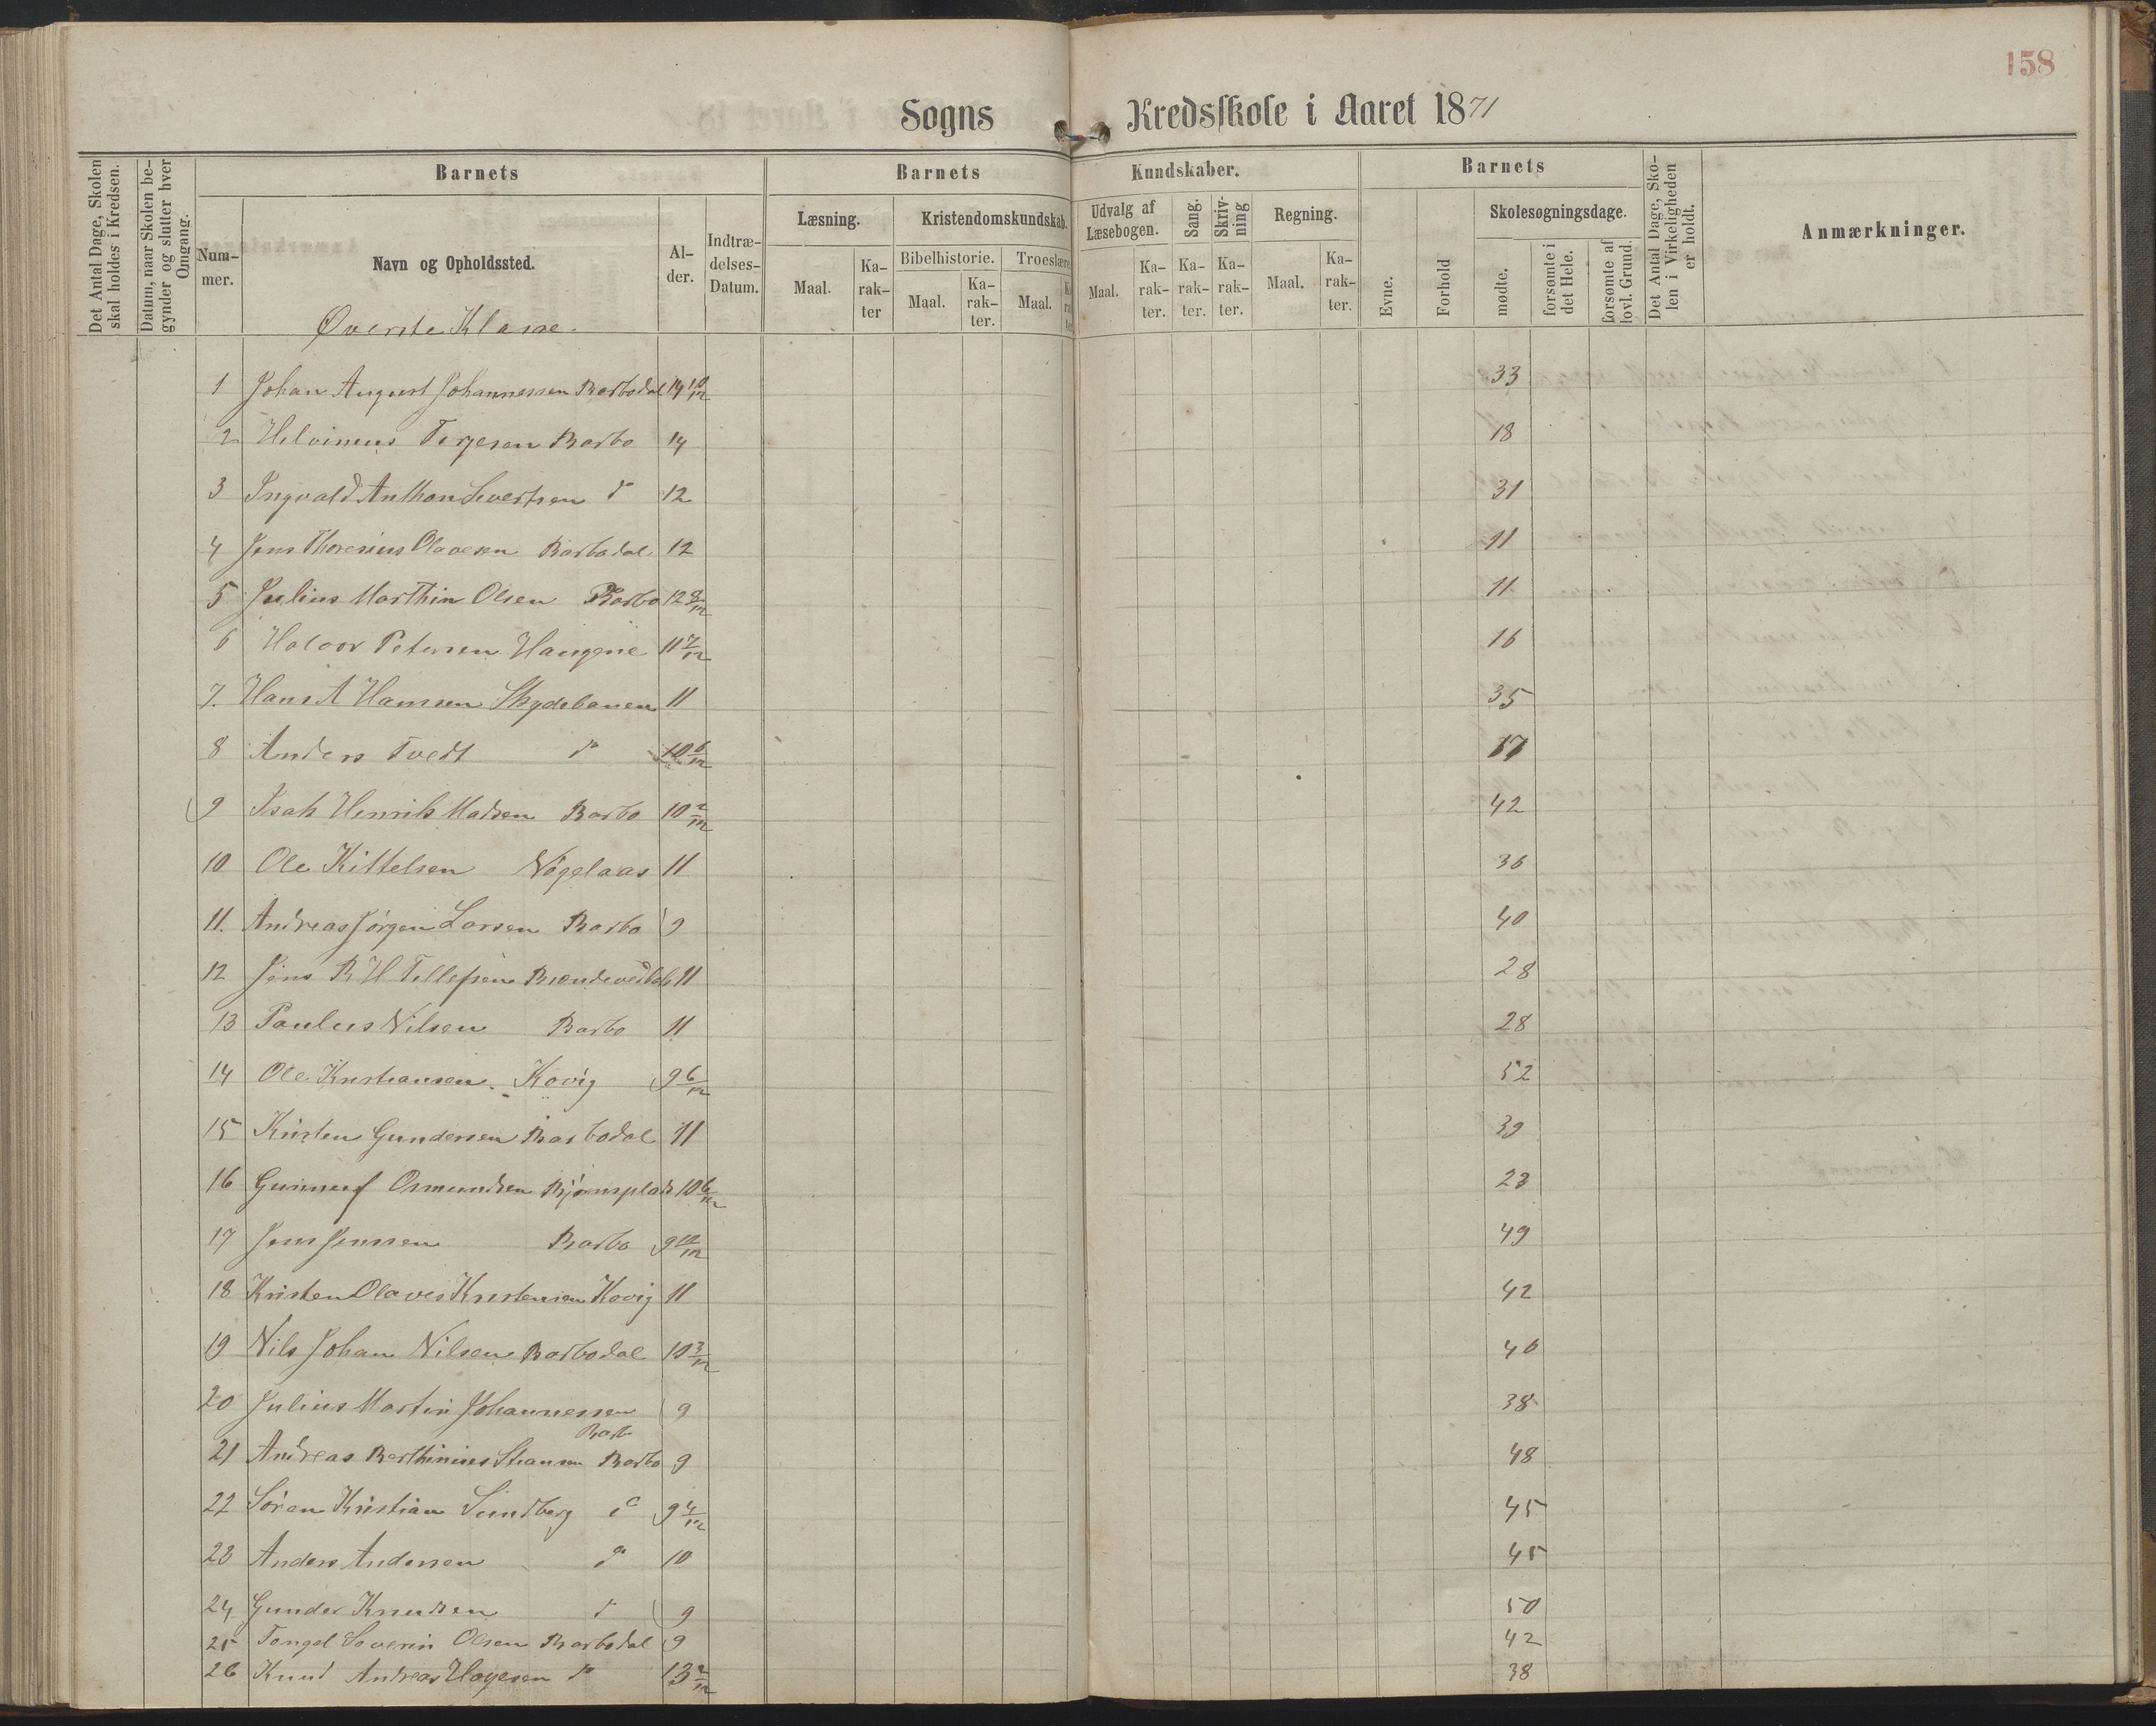 158
Sogns Kredsskole i Aaret 1871
Det Antal Dage, Skolen skal holdes i Kredsen.
Datum, naar Skolen begynder og slutter hver Omgang.
Barnets
Barnets Kundskaber.
Barnets
Det Antal Dage, Skolen i Virkeligheden er holdt.
Anmærkninger.
Nummer.
Navn og Opholdssted.
Alder.
Indtrædelses-Datum.
Læsning.
Kristendomskundskab.
Udvalg af Læsebogen.
Sang.
Skrivning
Regning.
Evne.
Forhold
Skolesøgningsdage.
Bibelhistorie.
Troeslære.
Maal.
Karakter
Maal.
Karakter.
Maal.
Karakter.
Maal.
Karakter.
Karakter.
Karakter.
Maal.
Karakter.
mødte.
forsømte i det Hele.
forsømte af lovl. Grund.
Øverste Klasse.
1 Johan August Johannessen Barbodal 14 10/12 33
2 Helvimus Terjesen Barbo 14 18
3 Ingvald Anthon Sivertsen do 12 31
4 Jens Thoresius Olavesen Barbodal 12 11
5 Julius Marthin Olsen Barbo 12 8/12 11
6 Halvor Petersen Haugene 11 7/12 16
7. Hans A Hansen Skydebanen 11 35
8 Anders Tvedt do 10 6/12 17
9 Isak Henrik Madsen Barbo 10 2/12 42
10 Ole Kittelsen Nøgelaas 11 36
11. Andreas Jørgen Larsen Barbo 9 40
12 Jens B H Tellefsen 11 28
13 Paulus Nilsen Barbo 11 28
14 Ole Kristiansen. Kovig 9 6/12 52
15 Kristen Gundersen Barbodal 11 39
16 Gunneuf Osmundsen Bjørnsplads 10 6/12 23
17 Jens Jenssen Barbo 9 10/12 49
18 Kristen Olaves Kristensen Kovig 11 42
19 Nils Johan Nilsen Barbodal 10 3/12 46
20 Julius Martin Johannessen Barbo 9 38
21 Andreas Berthinius Barbo 9 48
22 Søren Kristian Sundberg do 9 4/12 45
23 Anders Andersen do 10 45
24 Gunder Knudsen do 9 50
25 Tongel Severin Olsen Barbodal 9 42
26 Knud Andreas do 13 2/12 38